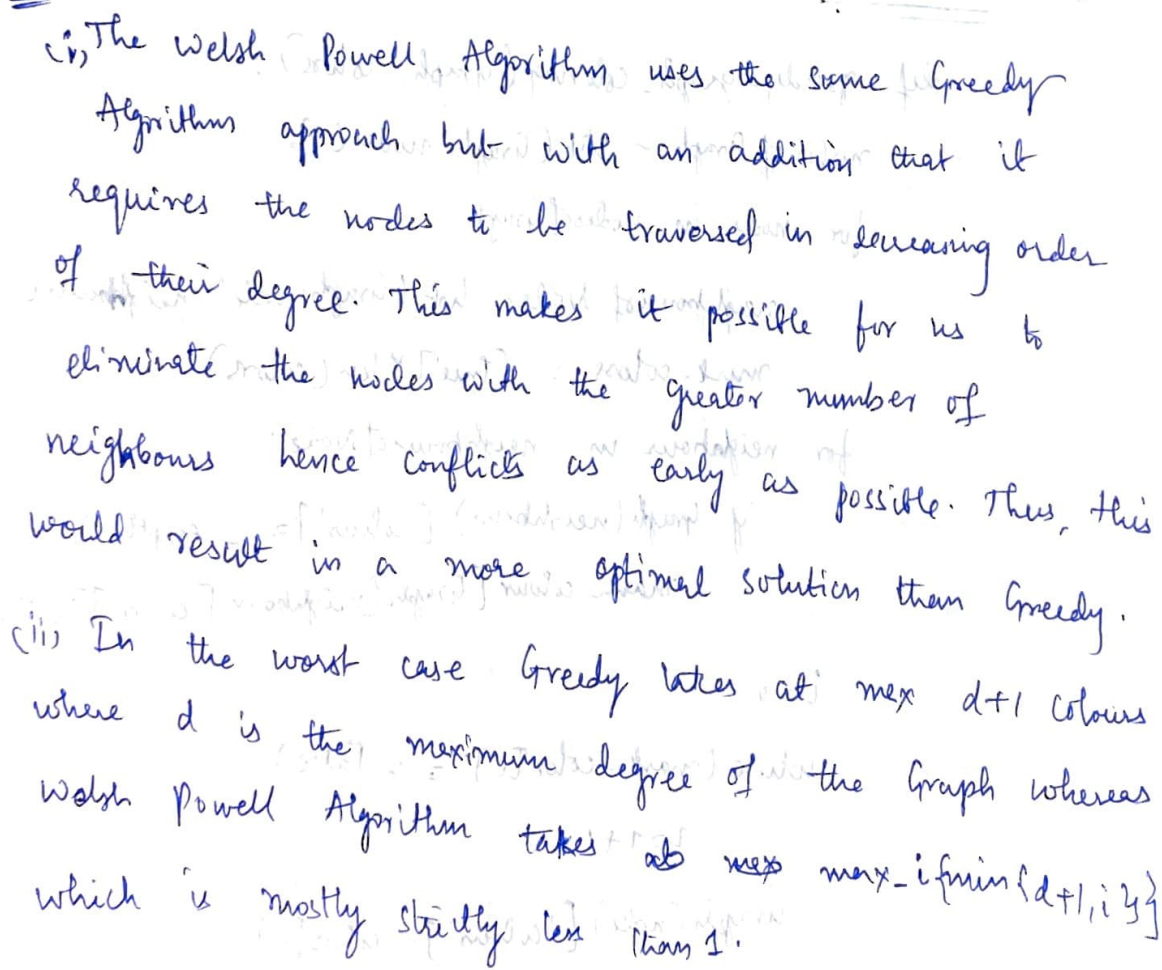 (i) The Welsh Powell Algorithm uses the same Greedy
Algorithm approach but with an addition that it
requires the nodes to be traversed in decreasing order
of their degree. This makes it possible for us to
eliminate the nodes with the greater number of
neighbours hence conflicts as early as possible. Thus, this
would result in a more optimal solution than Greedy.
(ii) In the worst case Greedy takes at max d+1 colours
where d is the maximum degree of the Graph whereas
Welsh Powell Algorithm takes max_i{min{d+1,i}}
which is mostly strictly less than 1.